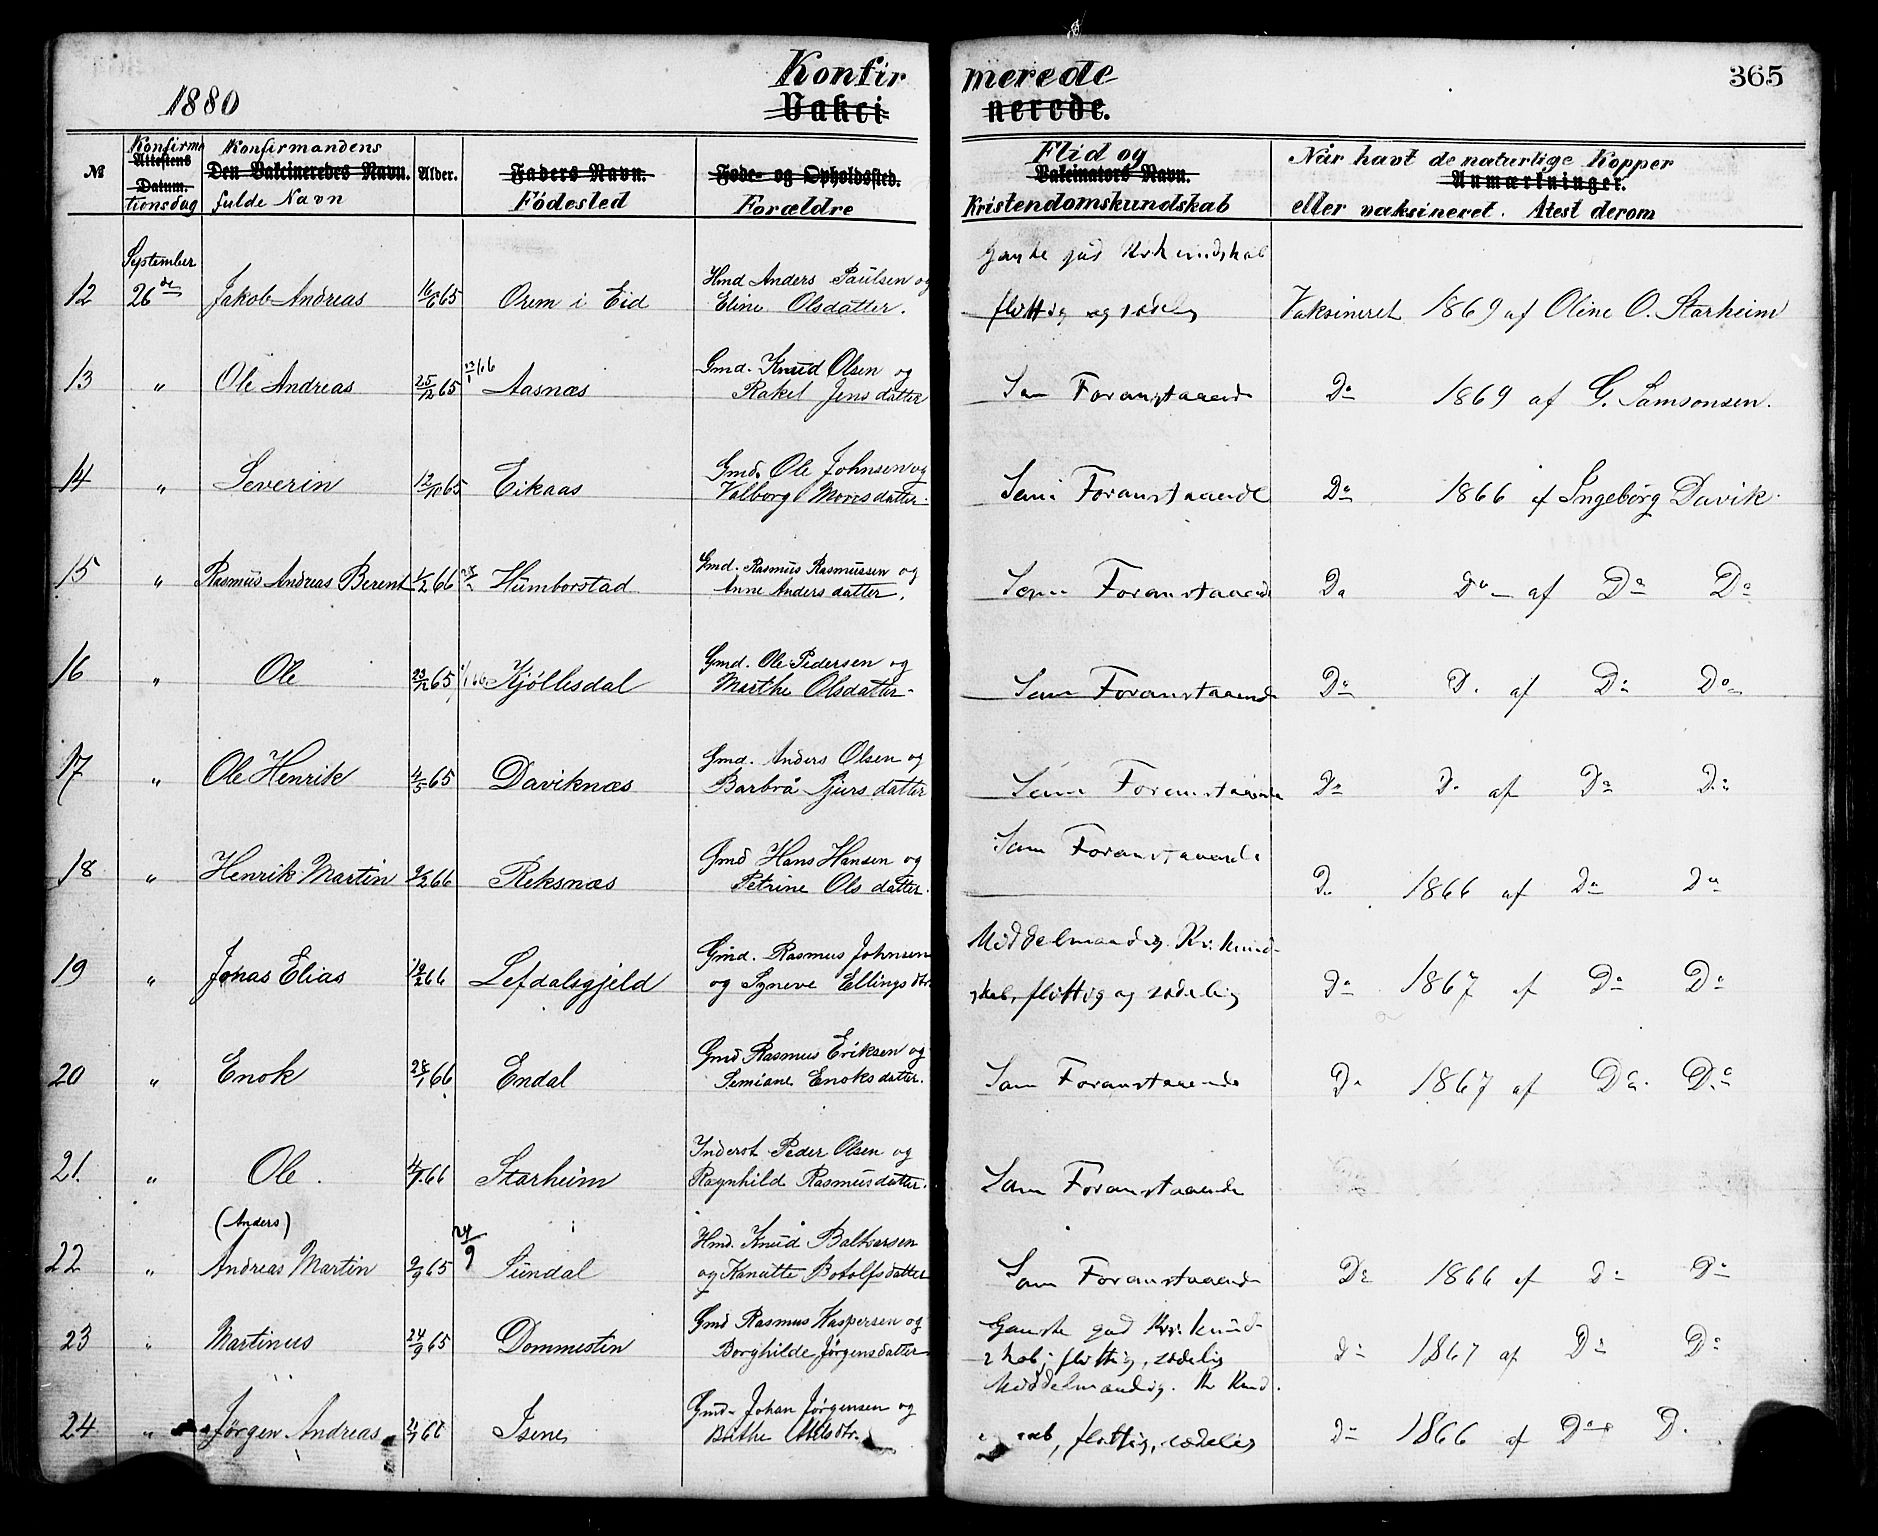 1880 Konfirmerede 365
Vakcinerede.
№ Konfirma Attestens Datum. tionsdag Konfirmandens Den Vakcineredes Navn. fulde Navn Alder. Faders Navn. Födested Føde- og Opholdssted. Forældre Flid og Vakcinators Navn. Kristendomskundskab Når havt de naturlige Kopper Anmærkninger. eller vaksineret. Atest derom
September Ganske god
12 26de Jakob Andreas 65 Orem i Eid Hmd Anders Paulsen og
Eline Olsdatter. flittig og sædelig Vaksineret 1869 af Oline O. Starheim
13 " Ole Andreas 25/12 65 Aasnæs Gmd. Knud Olsen og
Rakel Jensdatter Som Foranstaaende Do 1869 af G. Samsonsen.
14 " Severin 65 Eikaas Gmd. Ole Johnsen og
Valborg Monsdatter. Som Foranstaaende Do 1866 af Ingeborg Davik.
15 " Rasmus Andreas Berent 1/2 66 Humborstad Gmd. Rasmus Rasmussen og
Anne Andersdatter. Som Foranstaaende Do Do af Do Do
16 " Ole 23/12 65 Kjöllesdal Gmd. Ole Pedersen og
Marthe Olsdatter. Som Foranstaaende Do D. af Do Do
17 " Ole Henrik 4/5 65 Daviknæs Gmd. Anders Olsen og
Barbrå Sjursdatter Som Foranstaaende Do D. af Do Do
18 " Henrik Martin 9/2 66 Reksnæs Gmd Hans Hansen og
Petrine Olsdatter. Som Foranstaaende Do 1866 af Do Do
19 " Jonas Elias 66 Lefdalsgjeld Gmd. Rasmus Johnsen
og Syneve Ellingsdtr. Middelmaadig Kr. kund-
skab, flittig og sædelig Do 1867 af Do Do
20 " Enok 28/1 66 Endal Gmd Rasmus Eriksen og
Semiane Enoksdatter. Som Foranstaaende Do 1867 af Do. Do
21. " Ole. 66 Starheim Inderst Peder Olsen og
Ragnhild Rasmusdatter. Som Foranstaaende
(Anders)
22 " Andreas Martin 9/9 65 24/9 Sundal Hmd. Knud Baltsersen
og Kanutte Botolfsdatter Som Foranstaaende Do 1866 af Do Do
23 " Martinus 24/9 65 Dommesten Gmd Rasmus Kaspersen og
Borghilde Jørgensdatter Ganske god Kr. kund-
skab, flittig, sædelig Do 1867 af Do Do
24 " Jørgen Andreas 66 Isene Gmd. Johan Jørgensen og
Berthe Middelmaadig. Kr Kund.
skab, flittig, sædelig Do 1866 af Do D.